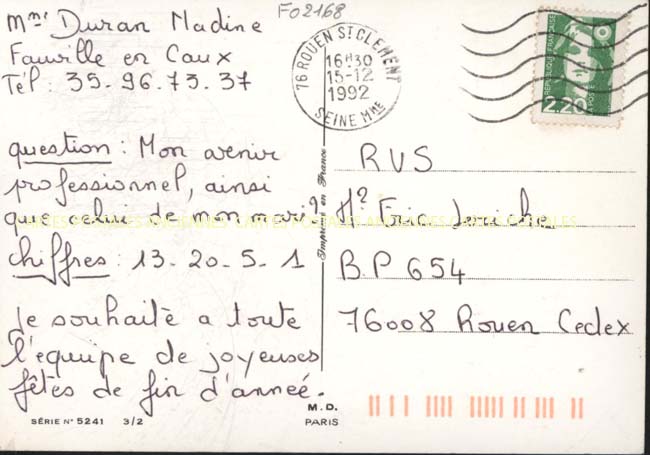 F02168
Mme Duran Nadine
Fauville en Caux
Tél : 35.96.73.37
question : Mon avenir
professionnel, ainsi
que celui de mon mari ?
chiffres : 13.20.5.1
Je souhaite a toute
l'equipe de joyeuses
fêtes de fin d'anneé.
SÉRIE N° 5241 3/2
M.D.
PARIS
Imprimé en France
76 ROUEN ST CLEMENT
16H30
15-12
1992
SEINE Mme
REPUBLIQUE FRANÇAISE
2,20
LA POSTE
RVS
Eric
B.P 654
76008 Rouen Cedex
CARTES POSTALES ANCIENNES CARTES POSTALES ANCIENNES CARTES POSTALES